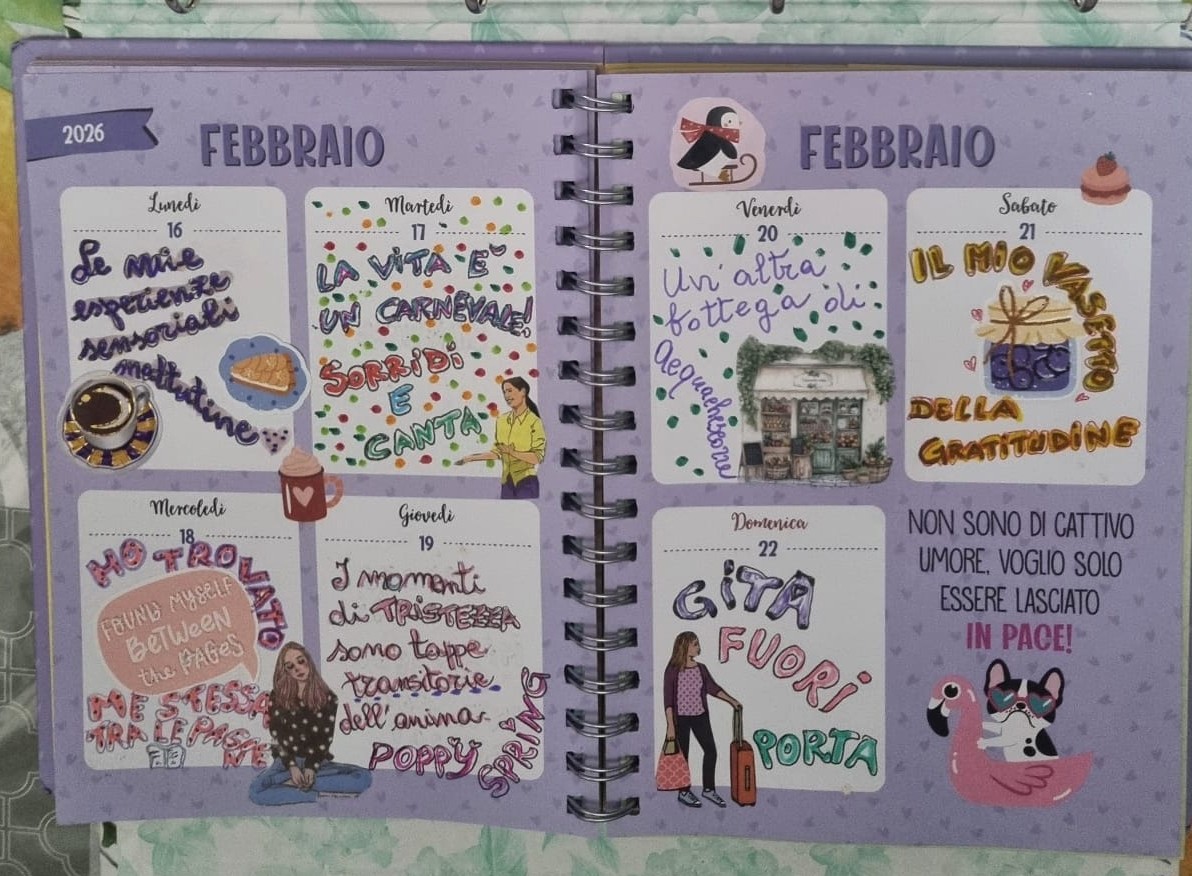 2026
FEBBRAIO
Lunedì
16
Le mie
esperienze
sensoriali
mattutine
Martedì
17
LA VITA E'
UN CARNEVALE!
SORRIDI
E
CANTA
Mercoledì
18
HO TROVATO
FOUND MYSELF
BETWEEN
the PAGES
ME STESSA
TRA LE PAGINE
Giovedì
19
I momenti
di TRISTEZZA
sono tappe
transitorie
dell'anima
POPPY
SPRING
FEBBRAIO
Venerdì
20
Un'altra
bottega di
Sabato
21
IL MIO VASETTO
DELLA
GRATITUDINE
Domenica
22
GITA
FUORI
PORTA
NON SONO DI CATTIVO
UMORE, VOGLIO SOLO
ESSERE LASCIATO
IN PACE!